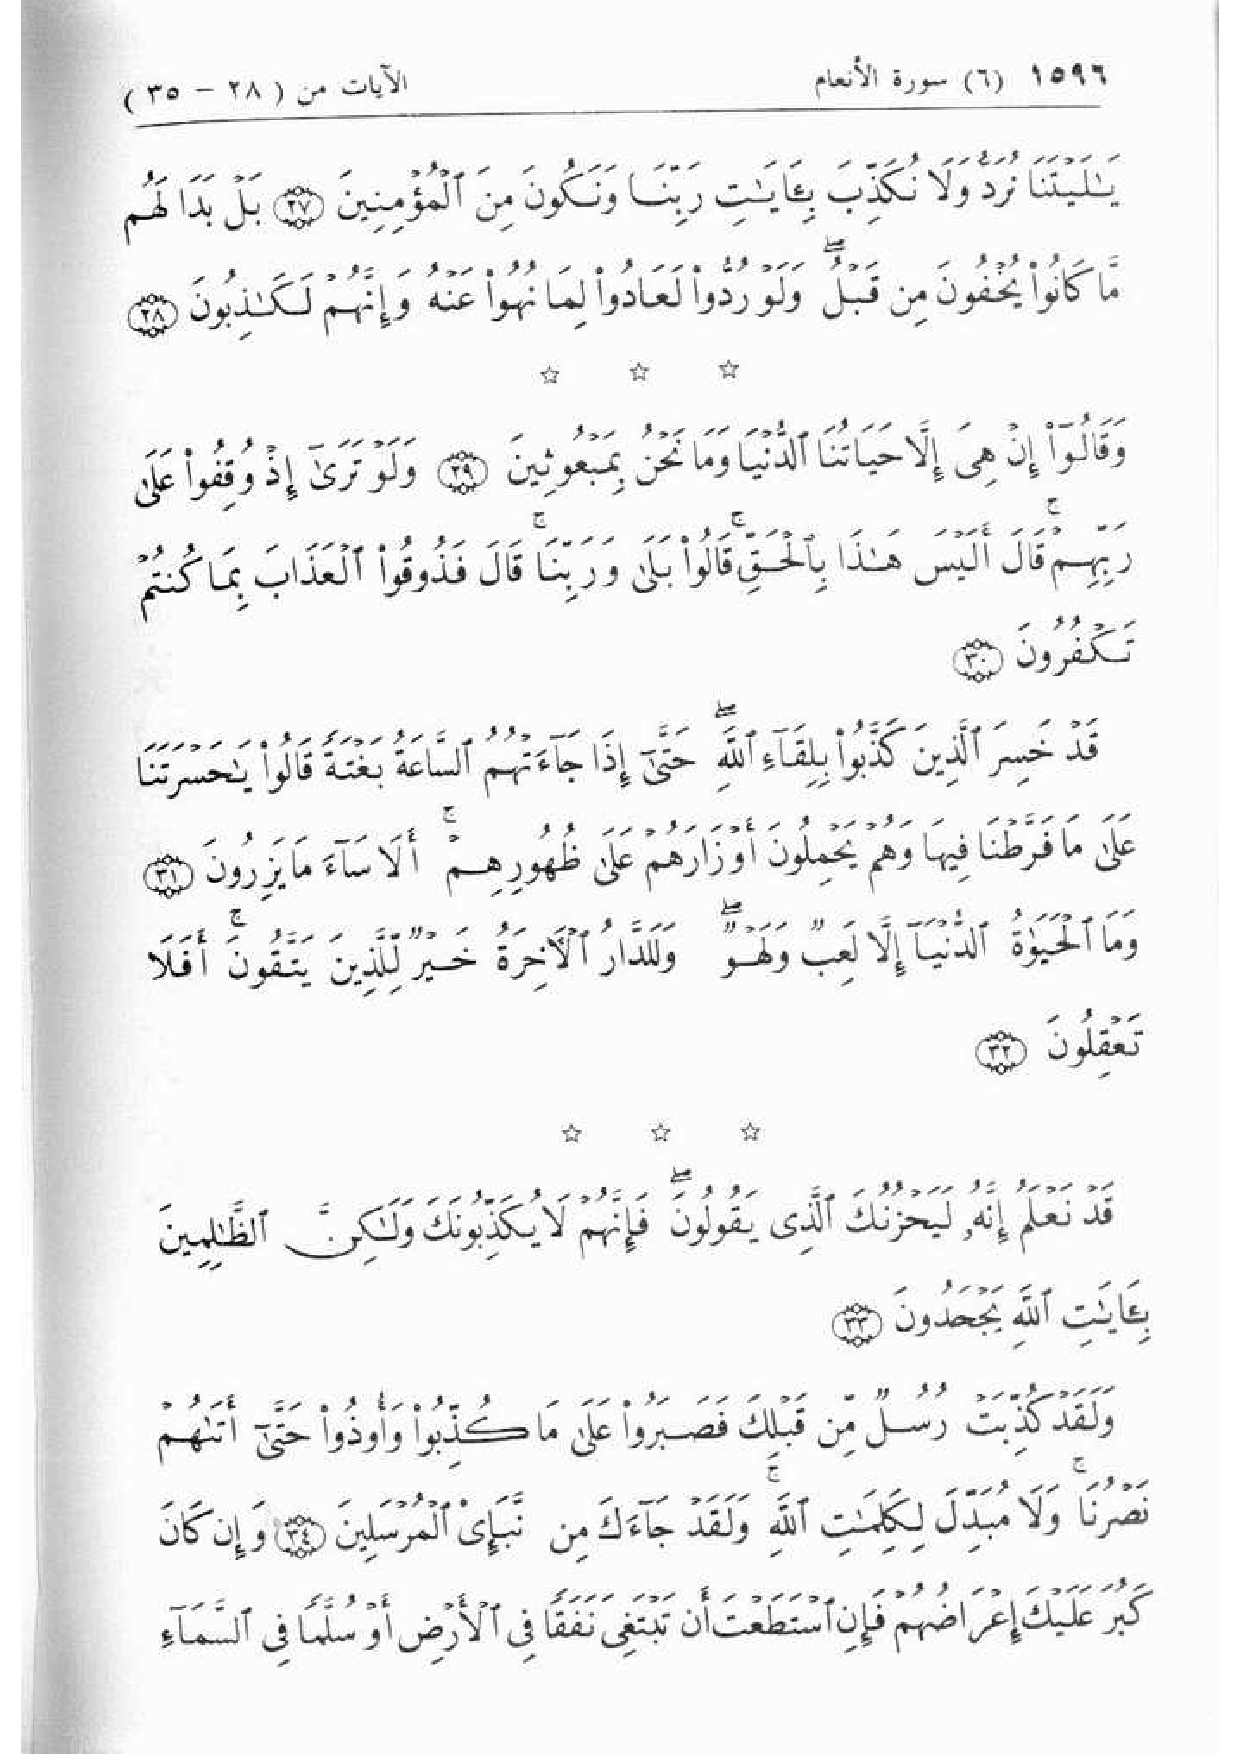 ١٥٩٦ (٦) سورة الأنعام الآيات من ( ٢٨ – ٣٥ )
يَٰلَيۡتَنَا نُرَدُّ وَلَا نُكَذِّبَ بِـَٔايَٰتِ رَبِّنَا وَنَكُونَ مِنَ ٱلۡمُؤۡمِنِينَ ٢٧ بَلۡ بَدَا لَهُم
مَّا كَانُواْ يُخۡفُونَ مِن قَبۡلُۖ وَلَوۡ رُدُّواْ لَعَادُواْ لِمَا نُهُواْ عَنۡهُ وَإِنَّهُمۡ لَكَٰذِبُونَ ٢٨
☆ ☆ ☆
وَقَالُوٓاْ إِنۡ هِيَ إِلَّا حَيَاتُنَا ٱلدُّنۡيَا وَمَا نَحۡنُ بِمَبۡعُوثِينَ ٢٩ وَلَوۡ تَرَىٰٓ إِذۡ وُقِفُواْ عَلَىٰ
رَبِّهِمۡۚ قَالَ أَلَيۡسَ هَٰذَا بِٱلۡحَقِّۚ قَالُواْ بَلَىٰ وَرَبِّنَاۚ قَالَ فَذُوقُواْ ٱلۡعَذَابَ بِمَا كُنتُمۡ
تَكۡفُرُونَ ٣٠
قَدۡ خَسِرَ ٱلَّذِينَ كَذَّبُواْ بِلِقَآءِ ٱللَّهِۖ حَتَّىٰٓ إِذَا جَآءَتۡهُمُ ٱلسَّاعَةُ بَغۡتَةٗ قَالُواْ يَٰحَسۡرَتَنَا
عَلَىٰ مَا فَرَّطۡنَا فِيهَا وَهُمۡ يَحۡمِلُونَ أَوۡزَارَهُمۡ عَلَىٰ ظُهُورِهِمۡۚ أَلَا سَآءَ مَا يَزِرُونَ ٣١
وَمَا ٱلۡحَيَوٰةُ ٱلدُّنۡيَآ إِلَّا لَعِبٞ وَلَهۡوٞۖ وَلَلدَّارُ ٱلۡأٓخِرَةُ خَيۡرٞ لِّلَّذِينَ يَتَّقُونَۚ أَفَلَا
تَعۡقِلُونَ ٣٢
☆ ☆ ☆
قَدۡ نَعۡلَمُ إِنَّهُۥ لَيَحۡزُنُكَ ٱلَّذِي يَقُولُونَۖ فَإِنَّهُمۡ لَا يُكَذِّبُونَكَ وَلَٰكِنَّ ٱلظَّٰلِمِينَ
بِـَٔايَٰتِ ٱللَّهِ يَجۡحَدُونَ ٣٣
وَلَقَدۡ كُذِّبَتۡ رُسُلٞ مِّن قَبۡلِكَ فَصَبَرُواْ عَلَىٰ مَا كُذِّبُواْ وَأُوذُواْ حَتَّىٰٓ أَتَىٰهُمۡ
نَصۡرُنَاۚ وَلَا مُبَدِّلَ لِكَلِمَٰتِ ٱللَّهِۚ وَلَقَدۡ جَآءَكَ مِن نَّبَإِيْ ٱلۡمُرۡسَلِينَ ٣٤ وَإِن كَانَ
كَبُرَ عَلَيۡكَ إِعۡرَاضُهُمۡ فَإِنِ ٱسۡتَطَعۡتَ أَن تَبۡتَغِيَ نَفَقٗا فِي ٱلۡأَرۡضِ أَوۡ سُلَّمٗا فِي ٱلسَّمَآءِ